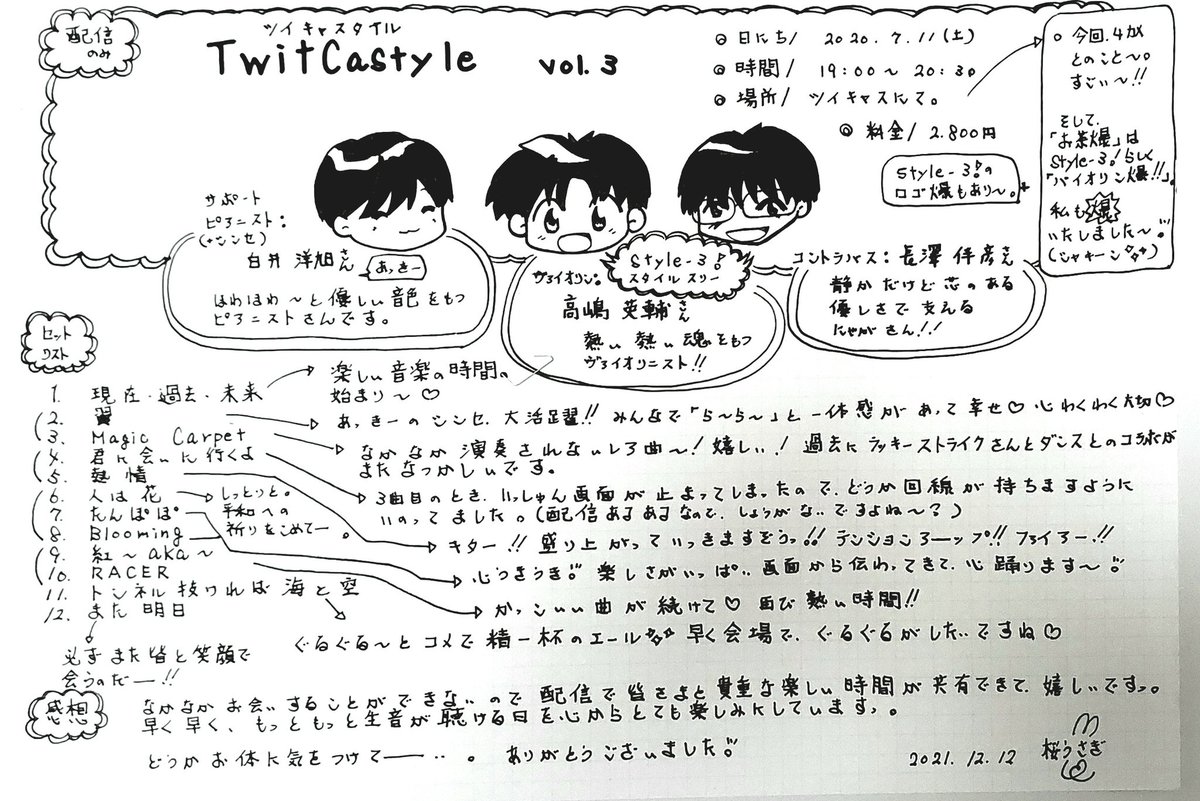 配信
のみ
ツイキャスタイル
TwitCastyle vol.3
◎ 日にち/ 2020.7.11(土)
◎ 時間/ 19:00〜20:30
◎ 場所/ ツイキャスにて。
◎ 料金/ 2.800円
○ 今回、4か
とのこと〜。
すごい〜!!
そして、
「お茶爆」は
Style-3!らしく
「バイオリン爆!!」。
私も爆
いたしました〜!!
(シャキーン)
Style-3!の
ロゴ爆もあり〜。
サポート
ピアニスト:
(+シンセ)
白井 洋旭さん
あっきー
ほわほわ〜と優しい音色をもつ
ピアニストさんです。
Style-3!
スタイル スリー
ヴァイオリン:
高嶋 英輔さん
熱い 熱い 魂をもつ
ヴァイオリニスト!!
コントラバス: 長澤 伴彦さん
静かだけど芯のある
優しさで支える
にゃがさん!!
セット
リスト
1. 現在・過去・未来
楽しい音楽の時間の
始まり〜♡
2. 翼
あっきーのシンセ、大活躍!! みんなで「ら〜ら〜」と一体感があって幸せ♡ 心わくわく 大切♡
3. Magic Carpet
なかなか演奏されないレア曲〜! 嬉しい! 過去にラッキーストライクさんとダンスとのコラボが
またなつかしいです。
4. 君に会いに行くよ
3曲目のとき、いっしゅん画面が止まってしまったので、どうか回線が持ちますように
いのってました。(配信あるあるなので、しょうがないですよね〜?)
5. 熱情
キター!! 盛り上がっていっきますぞうっ!! テンションアーップ!! ファイアー!!
6. 人は花
しっとりと。
平和への
祈りをこめてー。
7. たんぽぽ
心うきうき!! 楽しさがいっぱい 画面から伝わってきて、心踊ります〜!!
8. Blooming
9. 紅〜aka〜
かっこいい曲が続けて♡ 再び熱い時間!!
10. RACER
11. トンネル抜ければ 海と空
ぐるぐる〜と コメで精一杯のエール 早く会場で、ぐるぐるがしたいですね♡
12. また明日
必ずまた皆と笑顔で
会うのだー!!
感想
なかなかお会いすることができないので 配信で皆さまと貴重な楽しい時間が共有できて、嬉しいですっ。
早く早く、もっともっと生音が聴ける日を心からとても楽しみにしていますっ。
どうかお体に気をつけてー‥。 ありがとうございました!!
2021.12.12 桜うさぎ